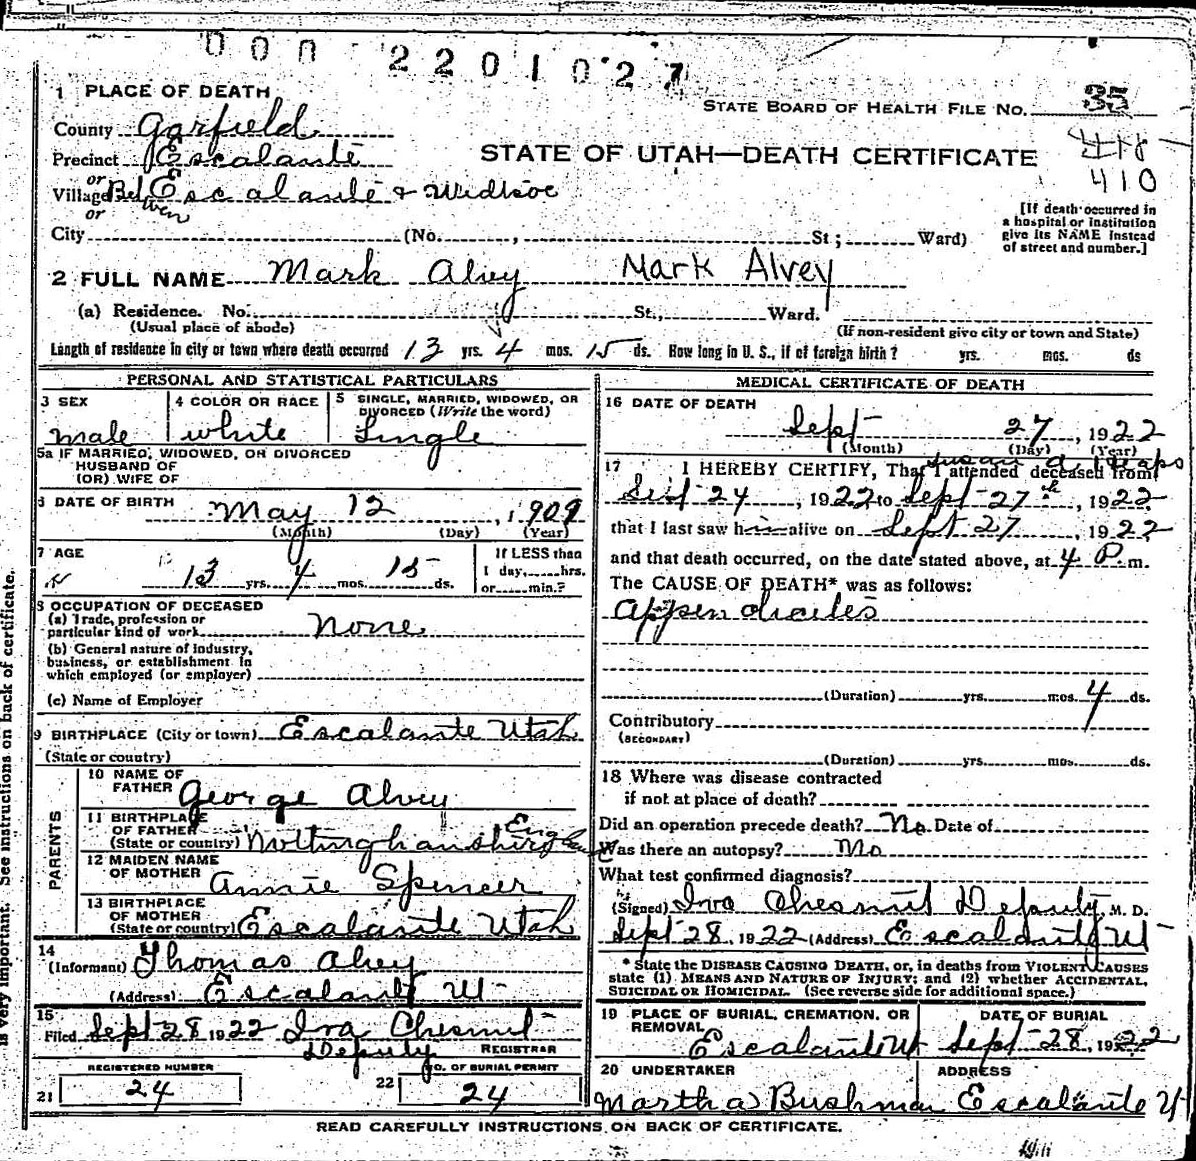 000 2201027
1 PLACE OF DEATH
STATE BOARD OF HEALTH FILE NO. 35
County Garfield
418
Precinct Escalante
STATE OF UTAH—DEATH CERTIFICATE
410
or
Village Bet ween Escalante & Widtsoe
or
[If death occurred in
a hospital or institution
give its NAME instead
of street and number.]
City (No. , St ; Ward)
2 FULL NAME Mark Alvey Mark Alvey
(a) Residence. No. St., Ward.
(Usual place of abode) (If non-resident give city or town and State)
Length of residence in city or town where death occurred 13 yrs. 4 mos. 15 ds. How long in U. S., if of foreign birth? yrs. mos. ds
PERSONAL AND STATISTICAL PARTICULARS
3 SEX male
4 COLOR OR RACE white
5 SINGLE, MARRIED, WIDOWED, OR
DIVORCED (Write the word)
Single
5a IF MARRIED, WIDOWED, OR DIVORCED
HUSBAND OF
(OR) WIFE OF
6 DATE OF BIRTH
May 12, 1909
(Month) (Day) (Year)
7 AGE
13 yrs. 4 mos. 15 ds.
If LESS than
1 day, hrs.
or min.?
8 OCCUPATION OF DECEASED
(a) Trade, profession or
particular kind of work None
(b) General nature of industry,
business, or establishment in
which employed (or employer)
(c) Name of Employer
9 BIRTHPLACE (City or town) Escalante Utah
(State or country)
PARENTS
10 NAME OF
FATHER George Alvey
11 BIRTHPLACE
OF FATHER
(State or country) Nottinghanshire England
12 MAIDEN NAME
OF MOTHER Annie Spencer
13 BIRTHPLACE
OF MOTHER
(State or country) Escalante Utah
14
(Informant) Thomas Alvey
(Address) Escalante Ut
15
Filed Sept 28 1922 Iva Chesnut
Deputy REGISTRAR
REGISTERED NUMBER
21 24
NO. OF BURIAL PERMIT
22 24
MEDICAL CERTIFICATE OF DEATH
16 DATE OF DEATH
Sept 27, 1922
(Month) (Day) (Year)
17 I HEREBY CERTIFY, That I attended deceased from
Sept 24, 1922 to Sept 27th, 1922
that I last saw him alive on Sept 27, 1922
and that death occurred, on the date stated above, at 4 P. m.
The CAUSE OF DEATH* was as follows:
Appendicites
(Duration) yrs. mos. 4 ds.
Contributory
(SECONDARY)
(Duration) yrs. mos. ds.
18 Where was disease contracted
if not at place of death?
Did an operation precede death? No Date of
Was there an autopsy? No
What test confirmed diagnosis?
(Signed) Iva Chesnut Deputy, M. D.
Sept 28, 1922 (Address) Escalante Ut
* State the DISEASE CAUSING DEATH, or, in deaths from VIOLENT CAUSES
state (1) MEANS AND NATURE OF INJURY; and (2) whether ACCIDENTAL,
SUICIDAL OR HOMICIDAL. (See reverse side for additional space.)
19 PLACE OF BURIAL, CREMATION, OR
REMOVAL
Escalante Ut
DATE OF BURIAL
Sept 28, 1922
20 UNDERTAKER
Martha Bushman
ADDRESS
Escalante Ut
READ CAREFULLY INSTRUCTIONS ON BACK OF CERTIFICATE.
is very important. See instructions on back of certificate.